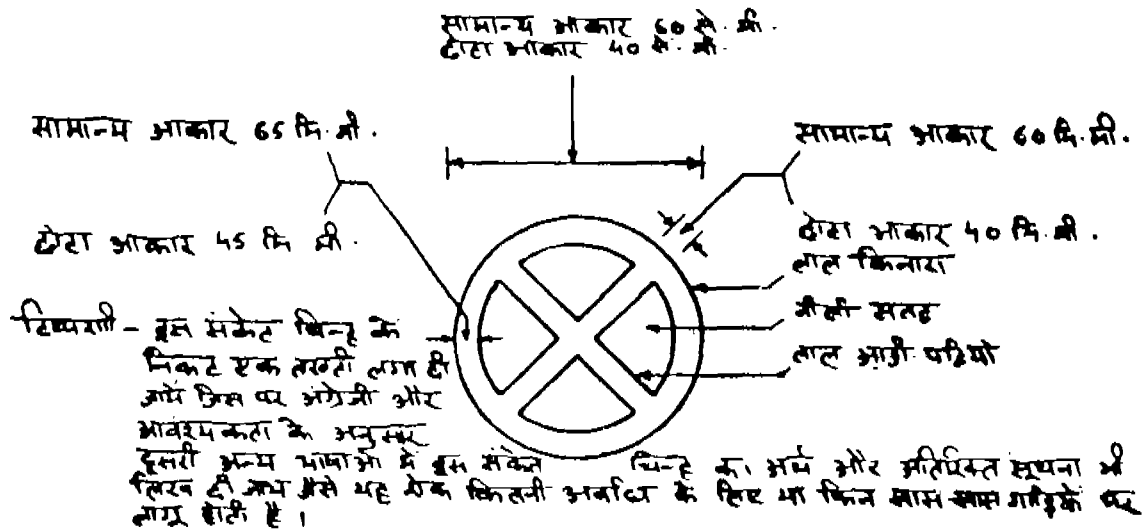 सामान्य आकार 60 से. मी.
छोटा आकार 40 से. मी.
सामान्य आकार 65 मि. मी.
सामान्य आकार 60 मि. मी.
छोटा आकार 45 मि मी.
छोटा आकार 40 मि. मी.
लाल किनारा
नीली सतह
लाल आड़ी पट्टियो
टिप्पणी - इस संकेत चिन्ह के
निकट एक तख्ती लगा दी
जाये जिस पर अंग्रेजी और
आवश्यकता के अनुसार
दूसरी अन्य भाषाओ में इस संकेत चिन्ह का अर्थ और अतिरिक्त सूचना भी
लिख दी जाय जैसे यह रोक कितनी अवधि के लिए या किन खास खास पर
लागू होती है ।